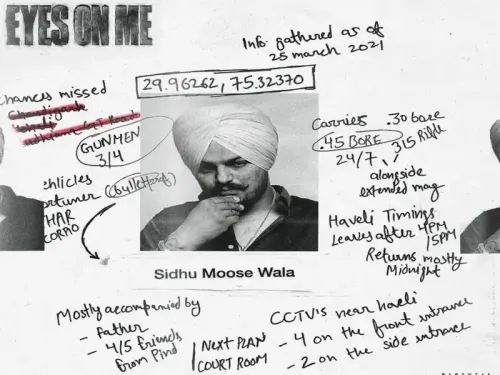 EYES ON ME
Info gathered as of
25 march 2021
29.96262, 75.32370
chances missed
GUNMEN
3/4
Carries .30 bore
.45 BORE 315 Rifle
24/7
alongside
extended mag
ehlicles
ortuner (bulletproof)
HAR
CORPIO
Haveli Timings
Leaves after 4PM
/5PM
Returns mostly
Midnight
Sidhu Moose Wala
Mostly accompanied by
- Father
- 4/5 friends
from Pind
NEXT PLAN
COURT ROOM
CCTV's near haveli
- 4 on the front entrance
- 2 on the side entrance